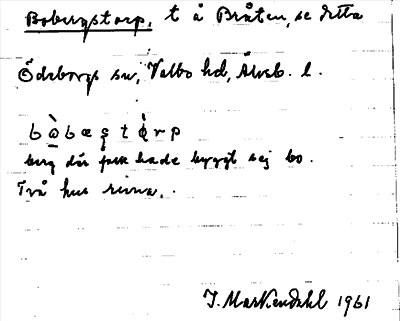 Bobergstorp, t å Bråten, se detta
Ödeborgs sn, Valbo hd, Älvsb. l.
bòbæstȯrp
berg där folk hade byggt sej bo.
Två hus rivna.
I. Markendahl 1961